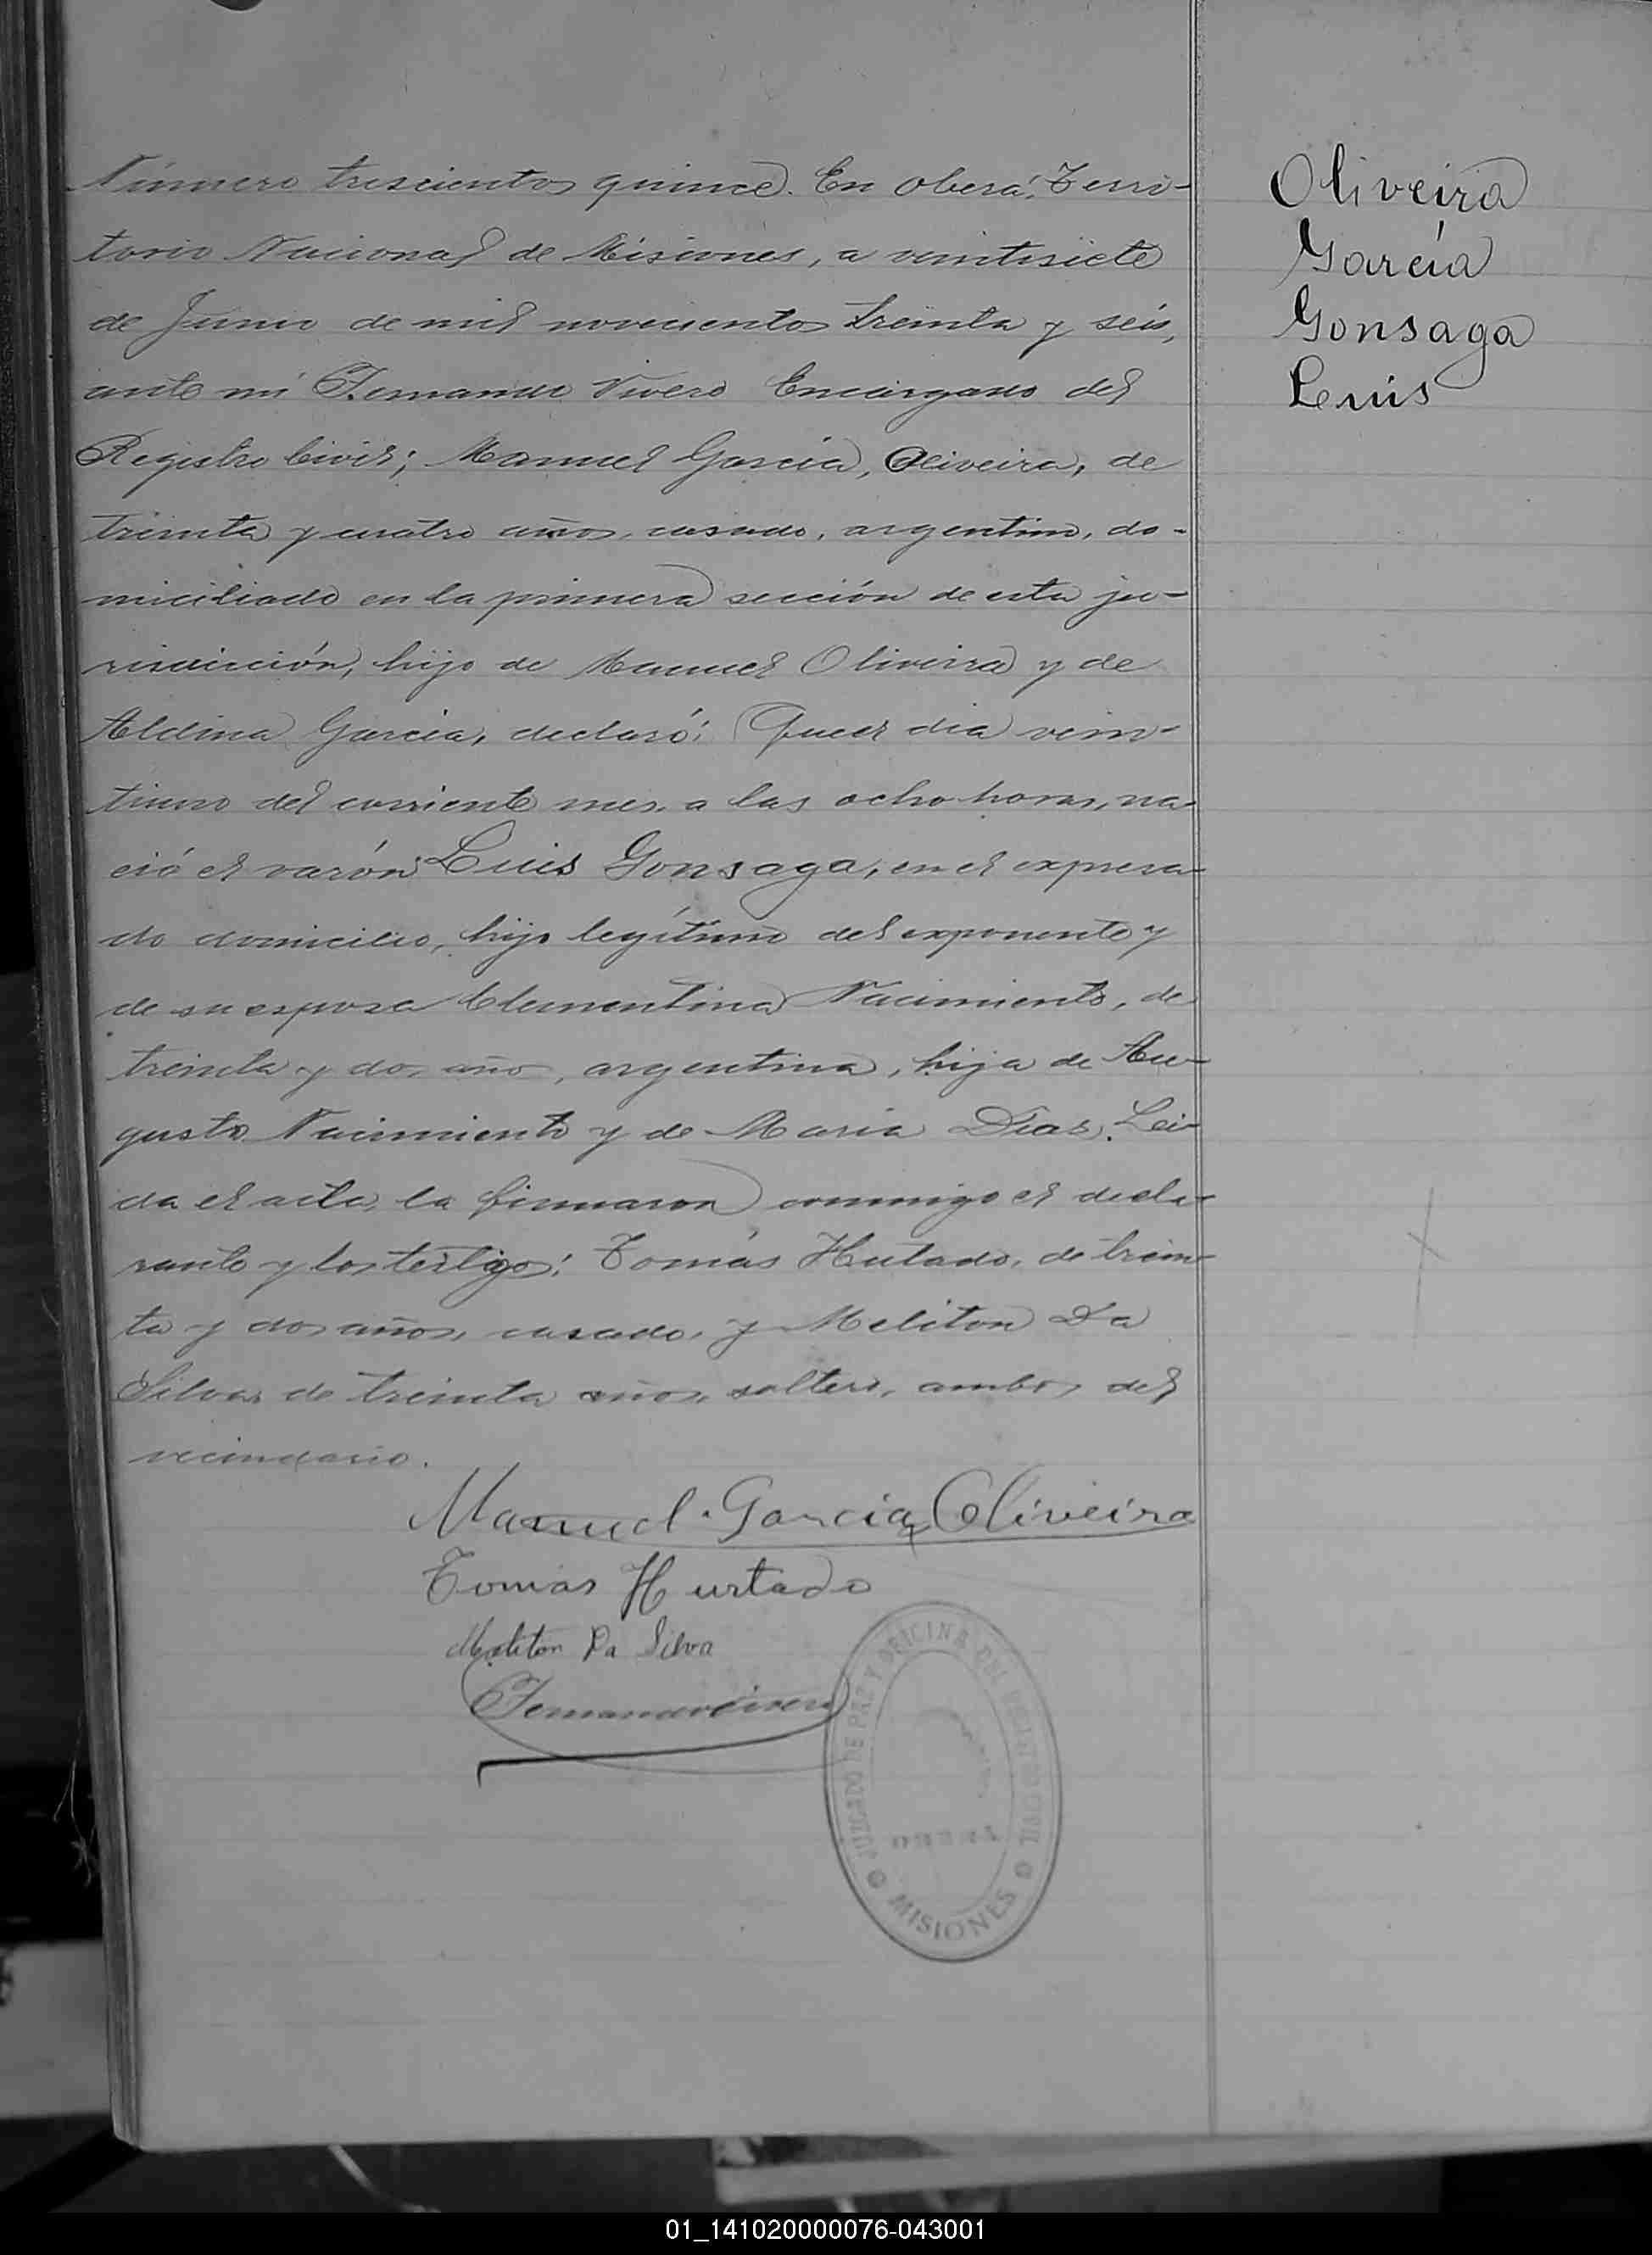 Número trescientos quince. En Oberá, Terri-
torio Nacional de Misiones, a veintisiete
de Junio de mil novecientos treinta y seis,
ante mi Fernando Vivero Encargado del
Registro Civil; Manuel García, Oliveira, de
treinta y cuatro años, casado, argentino, do-
miciliado en la primera sección de esta ju-
risdicción, hijo de Manuel Oliveira y de
Aldina García, declaró: Que el dia vein-
tiuno del corriente mes, a las ocho horas, na-
ció el varón Luis Gonsaga, en el expresa-
do domicilio, hijo legítimo del exponente y
de su esposa Clementina Nacimiento, de
treinta y dos años, argentina, hija de Au-
gusto Nacimiento y de Maria Dias. Lei-
da el acta, la firmaron conmigo el decla-
rante y los testigos: Tomás Hutado, de trein-
ta y dos años, casado, y Meliton Da
Silva, de treinta años, soltero, ambos del
vecindario.
Oliveira
García
Gonsaga
Luis
Manuel García Oliveira
Tomas Hurtado
Meliton Da Silva
Fernando Vivero
JUZGADO DE PAZ Y OFICINA DEL REGISTRO CIVIL
OBERA
MISIONES
01_141020000076-043001